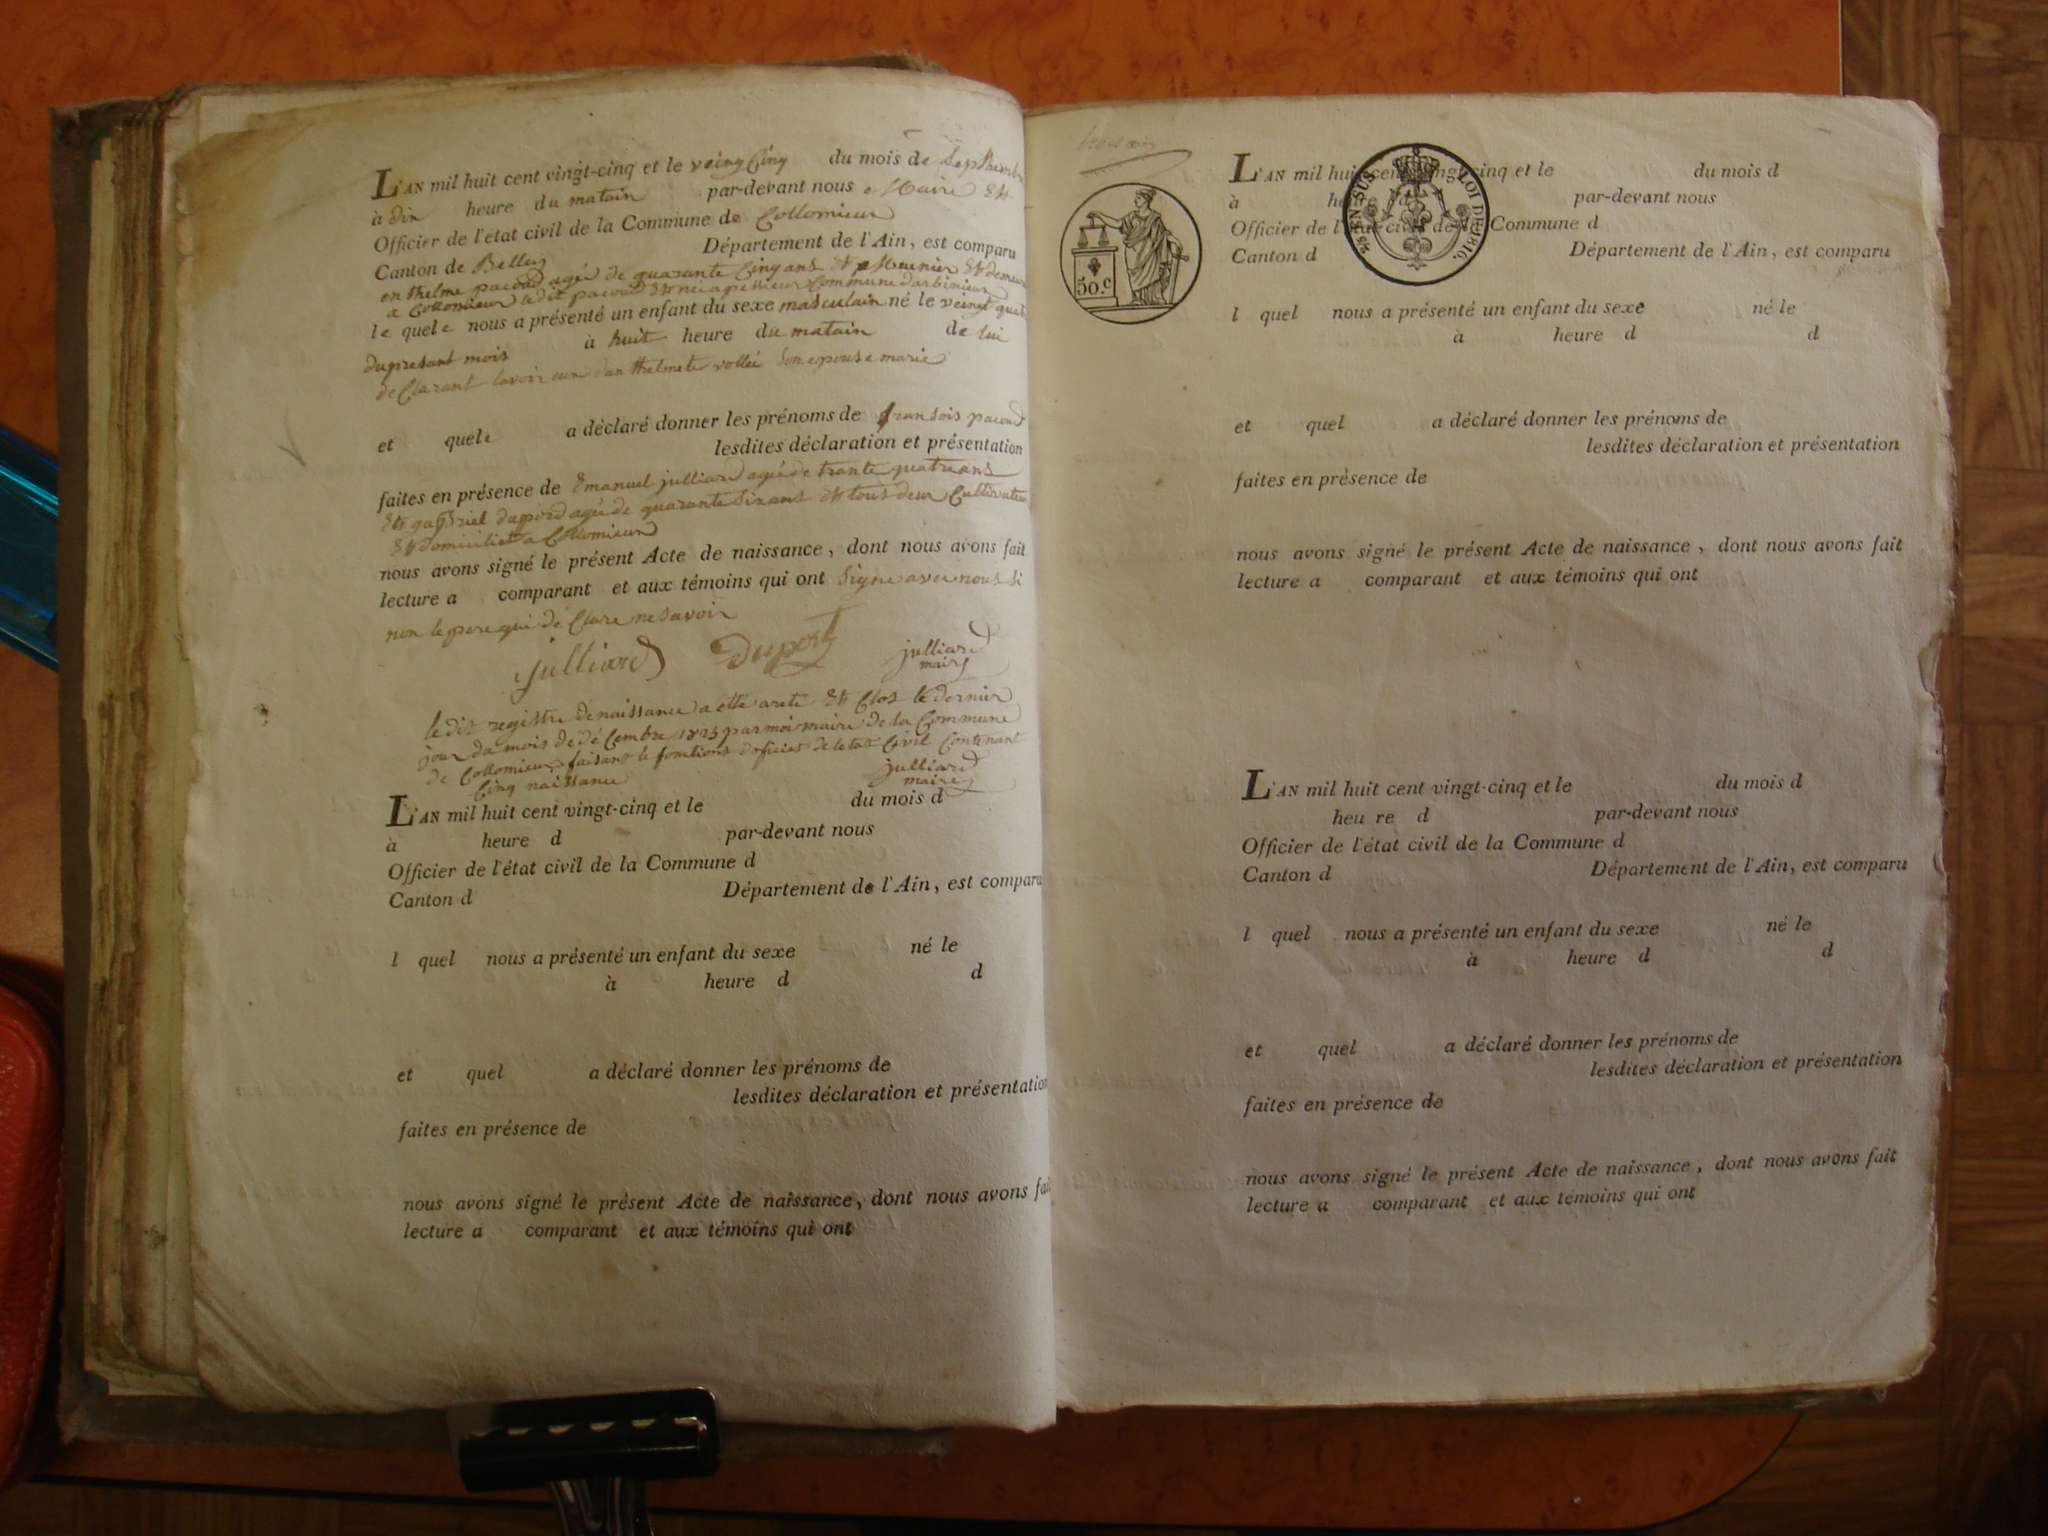 L'AN mil huit cent vingt-cinq et le veing Cinq du mois de Septembre
à dix heure du matain par-devant nous Maire Et
Officier de l'état civil de la Commune de Collomieux
Canton de Belley Département de l'Ain, est comparu
enthelme pacoud agée de quarante Cinq ans Et Meunier Et demeur
a Collomieux le dit pacoud Est né a Commune darbinieux
le quele nous a présenté un enfant du sexe masculain né le veingt quat
dupresant mois à huit heure du matain de lui
deClarant lavoir eux danthelmete vollée Son epouse marie
et quele a déclaré donner les prénoms de fransois pacoud
lesdites déclaration et présentation
faites en présence de Emanuel julliard agée de trante quatre ans
Et gabriel duport agée de quarante Six ans Et tous deux Cultivateur
Et domiciliet a Collomieux
nous avons signé le présent Acte de naissance, dont nous avons fait
lecture a comparant et aux témoins qui ont Signe avec nous Si
non le pere qui dé Clare ne savoir
julliard Duport julliard
maire
le dit registre de naissance a etté areté Et Clos le dernier
jour du mois de déCembre 1825 par moi maire de la Commune
de Collomieux faisant le fonctions doficier de letat Civil Contenant
Cinq naissance julliard
maire
L'AN mil huit cent vingt-cinq et le du mois d
à heure d par-devant nous
Officier de l'état civil de la Commune d
Canton d Département de l'Ain, est comparu
l quel nous a présenté un enfant du sexe né le
à heure d d
et quel a déclaré donner les prénoms de
lesdites déclaration et présentation
faites en présence de
nous avons signé le présent Acte de naissance, dont nous avons fai
lecture a comparant et aux témoins qui ont
50.c
EN SUS LOI DE 1816.
L'AN mil huit cent vingt-cinq et le du mois d
à heure d par-devant nous
Officier de l'état civil de la Commune d
Canton d Département de l'Ain, est comparu
l quel nous a présenté un enfant du sexe né le
à heure d d
et quel a déclaré donner les prénoms de
lesdites déclaration et présentation
faites en présence de
nous avons signé le présent Acte de naissance, dont nous avons fait
lecture a comparant et aux témoins qui ont
L'AN mil huit cent vingt-cinq et le du mois d
heu re d par-devant nous
Officier de l'état civil de la Commune d
Canton d Département de l'Ain, est comparu
l quel nous a présenté un enfant du sexe né le
à heure d d
et quel a déclaré donner les prénoms de
lesdites déclaration et présentation
faites en présence de
nous avons signé le présent Acte de naissance, dont nous avons fait
lecture a comparant et aux témoins qui ont